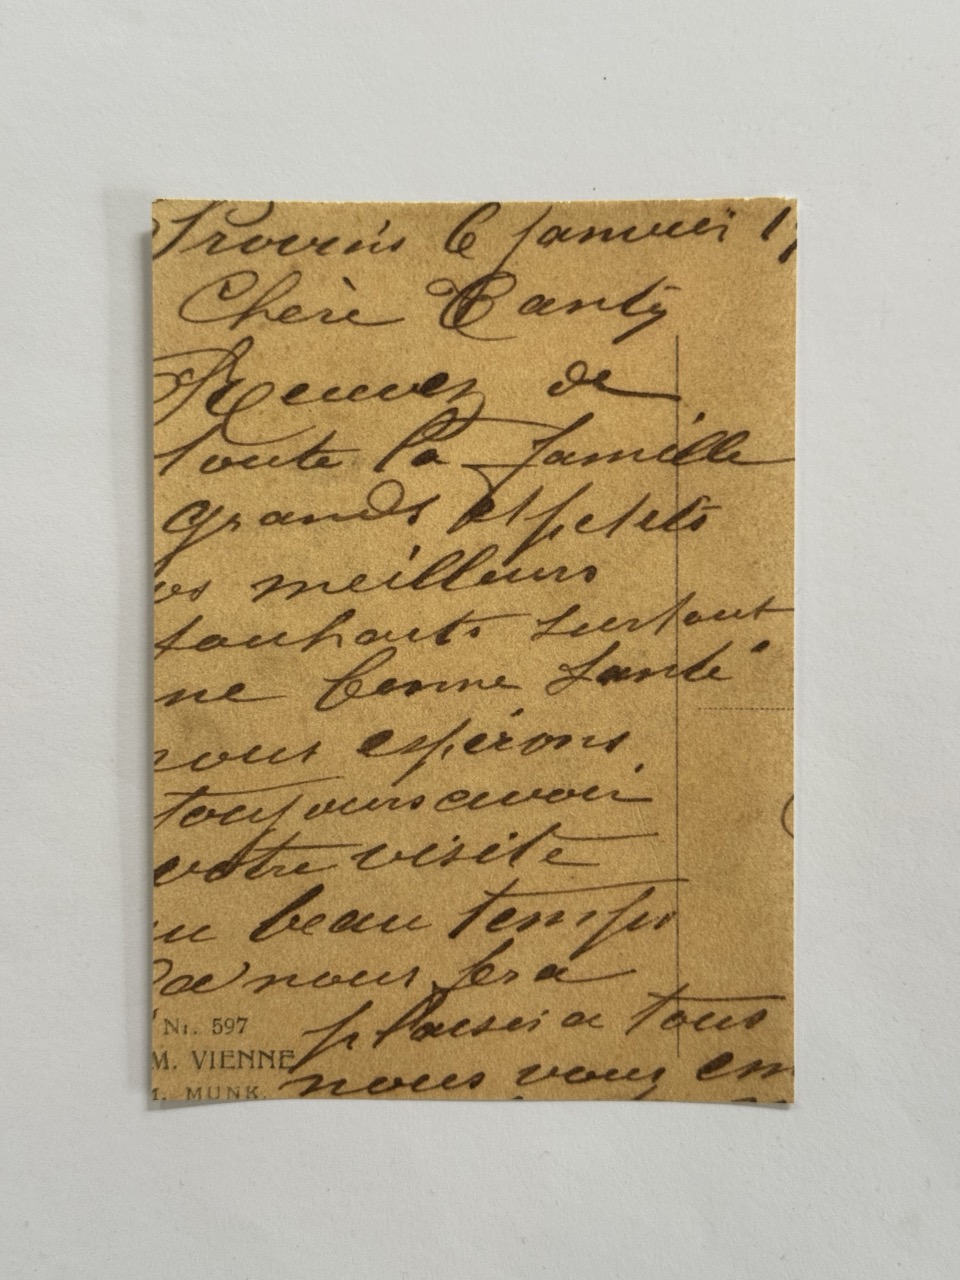 Provins 6 janvier 19
Chère Tanty
Recevez de
toute la famille
grands et petits
os meilleurs
souhaits surtout
ne bonne santé
nous espérons
toujours avoir
votre visite
au beau temps
Ça nous fera
plaisir a tous
nous vous em
Nr. 597
M. VIENNE
M. MUNK.